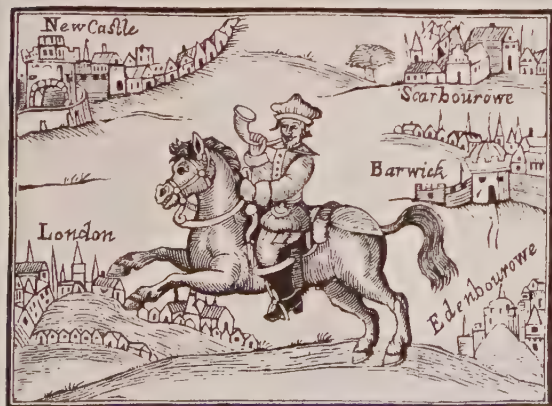 New Castle
Scarbourowe
Barwick
London
Edenbourowe